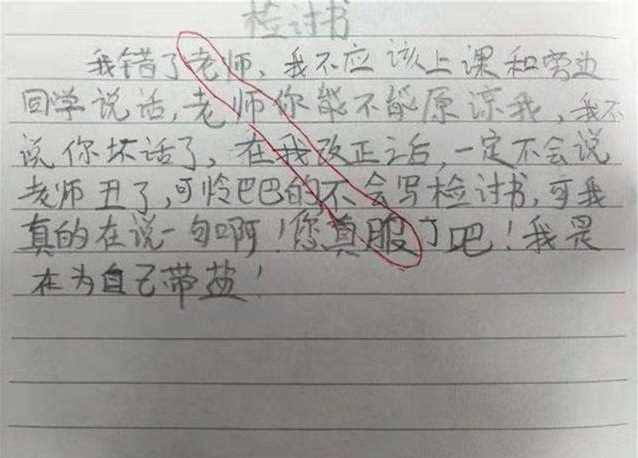 检讨书
我错了老师，我不应该上课和旁边
同学说话，老师你能不能原谅我，我不
说你坏话了，在我改正之后，一定不会说
老师丑了，可怜巴巴的不会写检讨书，可我
真的在说一句啊！您真服了吧！我是
在为自己带盐！